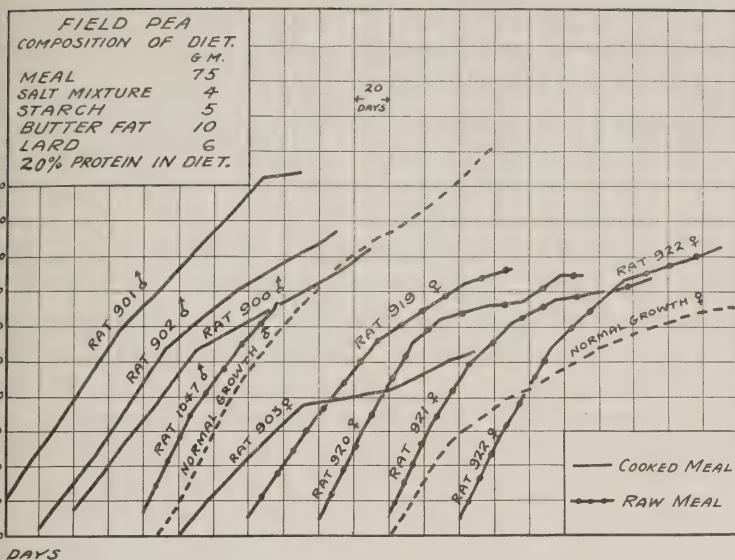 FIELD PEA
COMPOSITION OF DIET.
GM.
MEAL 75
SALT MIXTURE 4
STARCH 5
BUTTER FAT 10
LARD 6
20% PROTEIN IN DIET.
20
DAYS
RAT 901 ♂
RAT 902 ♂
RAT 900 ♂
RAT 1047 ♂
NORMAL GROWTH ♂
RAT 903 ♀
RAT 919 ♀
RAT 920 ♀
RAT 921 ♀
RAT 922 ♀
RAT 922 ♀
NORMAL GROWTH ♀
COOKED MEAL
RAW MEAL
DAYS